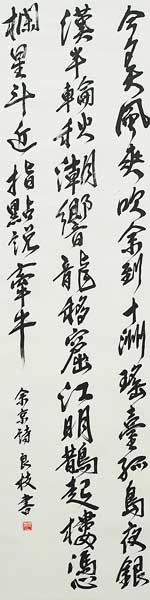 今夕天風爽吹余到十洲瑤臺孤島夜銀
漢半輪秋潮響龍移窟江明鵲起樓憑
欄星斗近指點說牽牛
余京詩良枝書